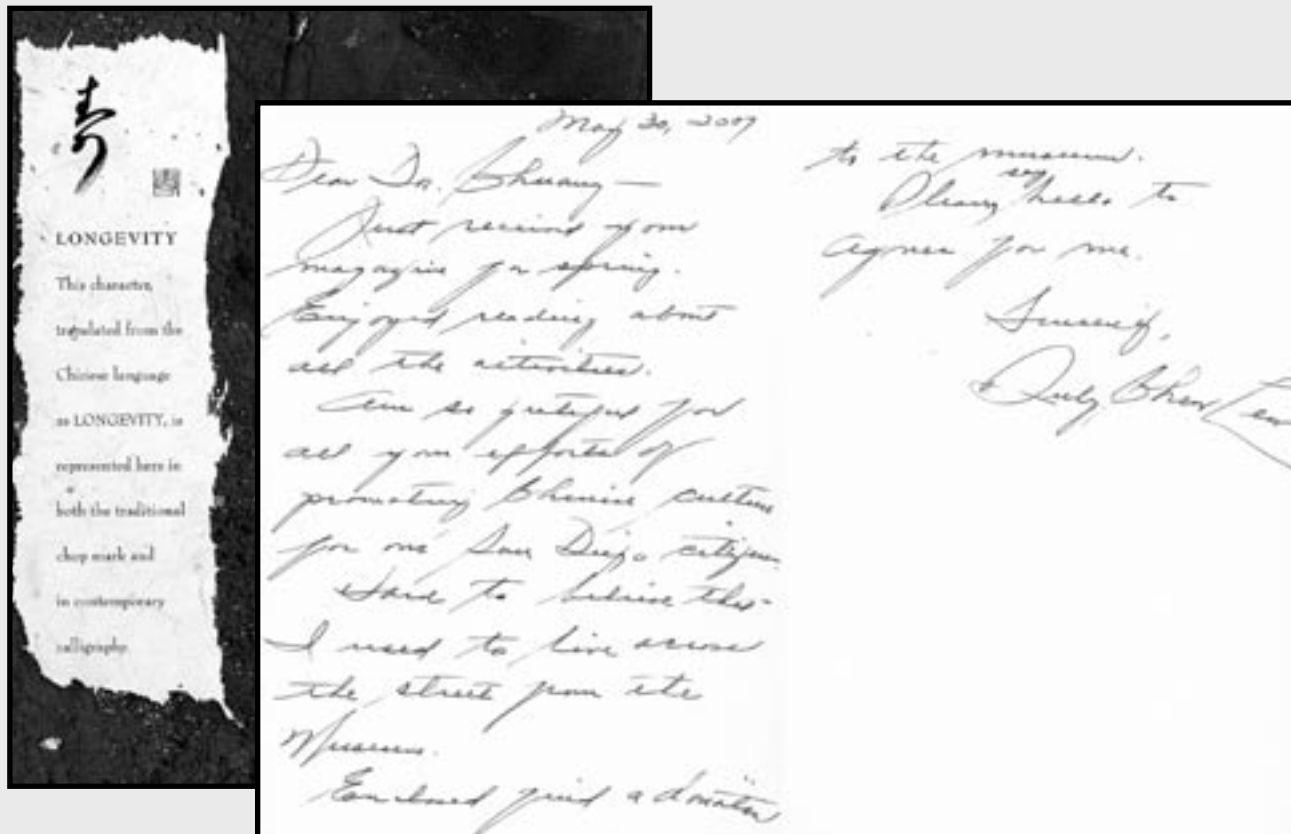 寿
LONGEVITY
This character,
translated from the
Chinese language
as LONGEVITY, is
represented here in
both the traditional
chop mark and
in contemporary
calligraphy.
May 30, 2009
Dear Dr. Chuang —
Just received your
magazine for spring.
Enjoyed reading about
all the activities.
Am so grateful for
all your efforts of
promoting Chinese culture
for our San Diego citizens.
Hard to believe that
I used to live across
the street from the
Museum.
Enclosed find a donation
to the museum.
Please say hello to
Agnes for me.
Sincerely,
Chew